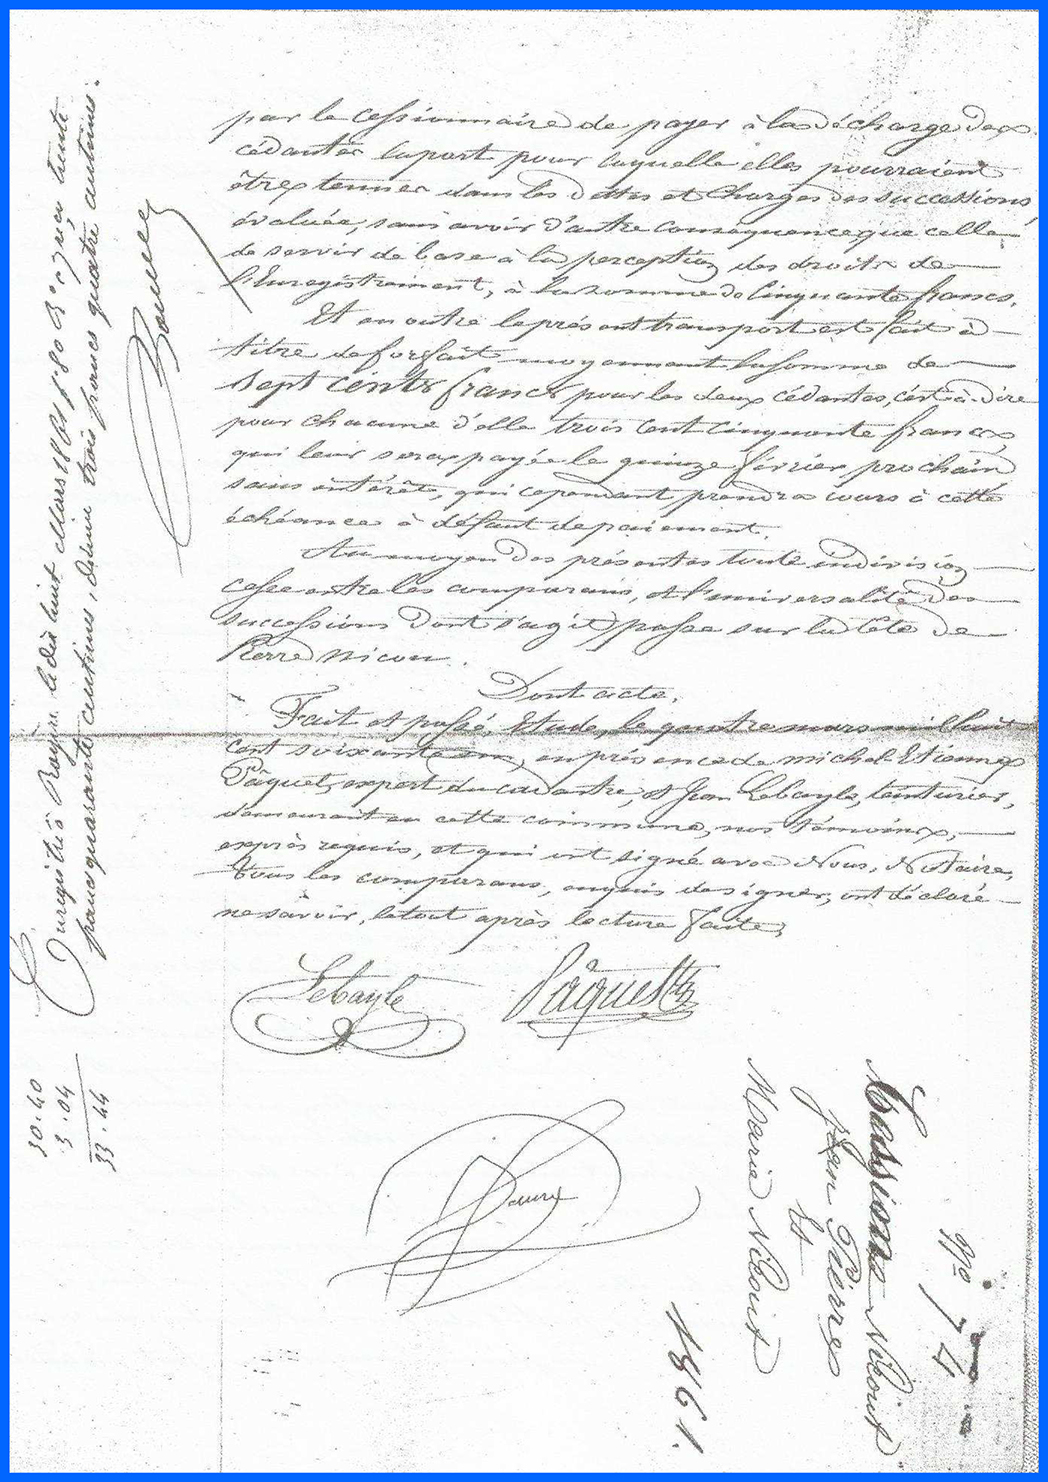 par le cessionnaire de payer à la décharge des
cédantes la part pour laquelle elles pourraient
être tenues dans les dettes et charges des successions,
évaluée, sans avoir d'autre conséquence que celle
de servir de base à la perception des droits de
l'Enregistrement, à la somme de Cinquante francs.
Et en outre le présent transport est fait à
titre de forfait moyennant la somme de
sept cents francs pour les deux cédantes, c'est-à-dire
pour chacune d'elle trois cent cinquante francs,
qui leur sera payée le quinze février prochain
sans intérêt, qui cependant prendra cours à cette
échéance à défaut de paiement.
Au moyen des présentes toute indivision
cesse entre les comparans, et l'universalité des
successions dont s'agit passe sur la tête de
Pierre Nicou.
Dont acte,
Fait et passé, Etude, le quatre mars mil huit
cent soixante un, en présence de Michel Etienne
Pâquet, expert du cadastre, et Jean Lebayle, teinturier,
demeurant en cette commune, nos témoins,
exprès requis, et qui ont signé avec Nous, Notaire,
tous les comparans, enquis de signer, ont déclaré
ne savoir, le tout après lecture faite,
Lebayle Pâquet
Enregistré à le dix huit Mars 1861 f° 80 R° reçu trente
francs quarante centimes, décime trois francs quatre centimes.
30.40
3.04
33.44
N° 74
Cession Nibout
Jean Pierre
Et
Marie Nibout
1861.